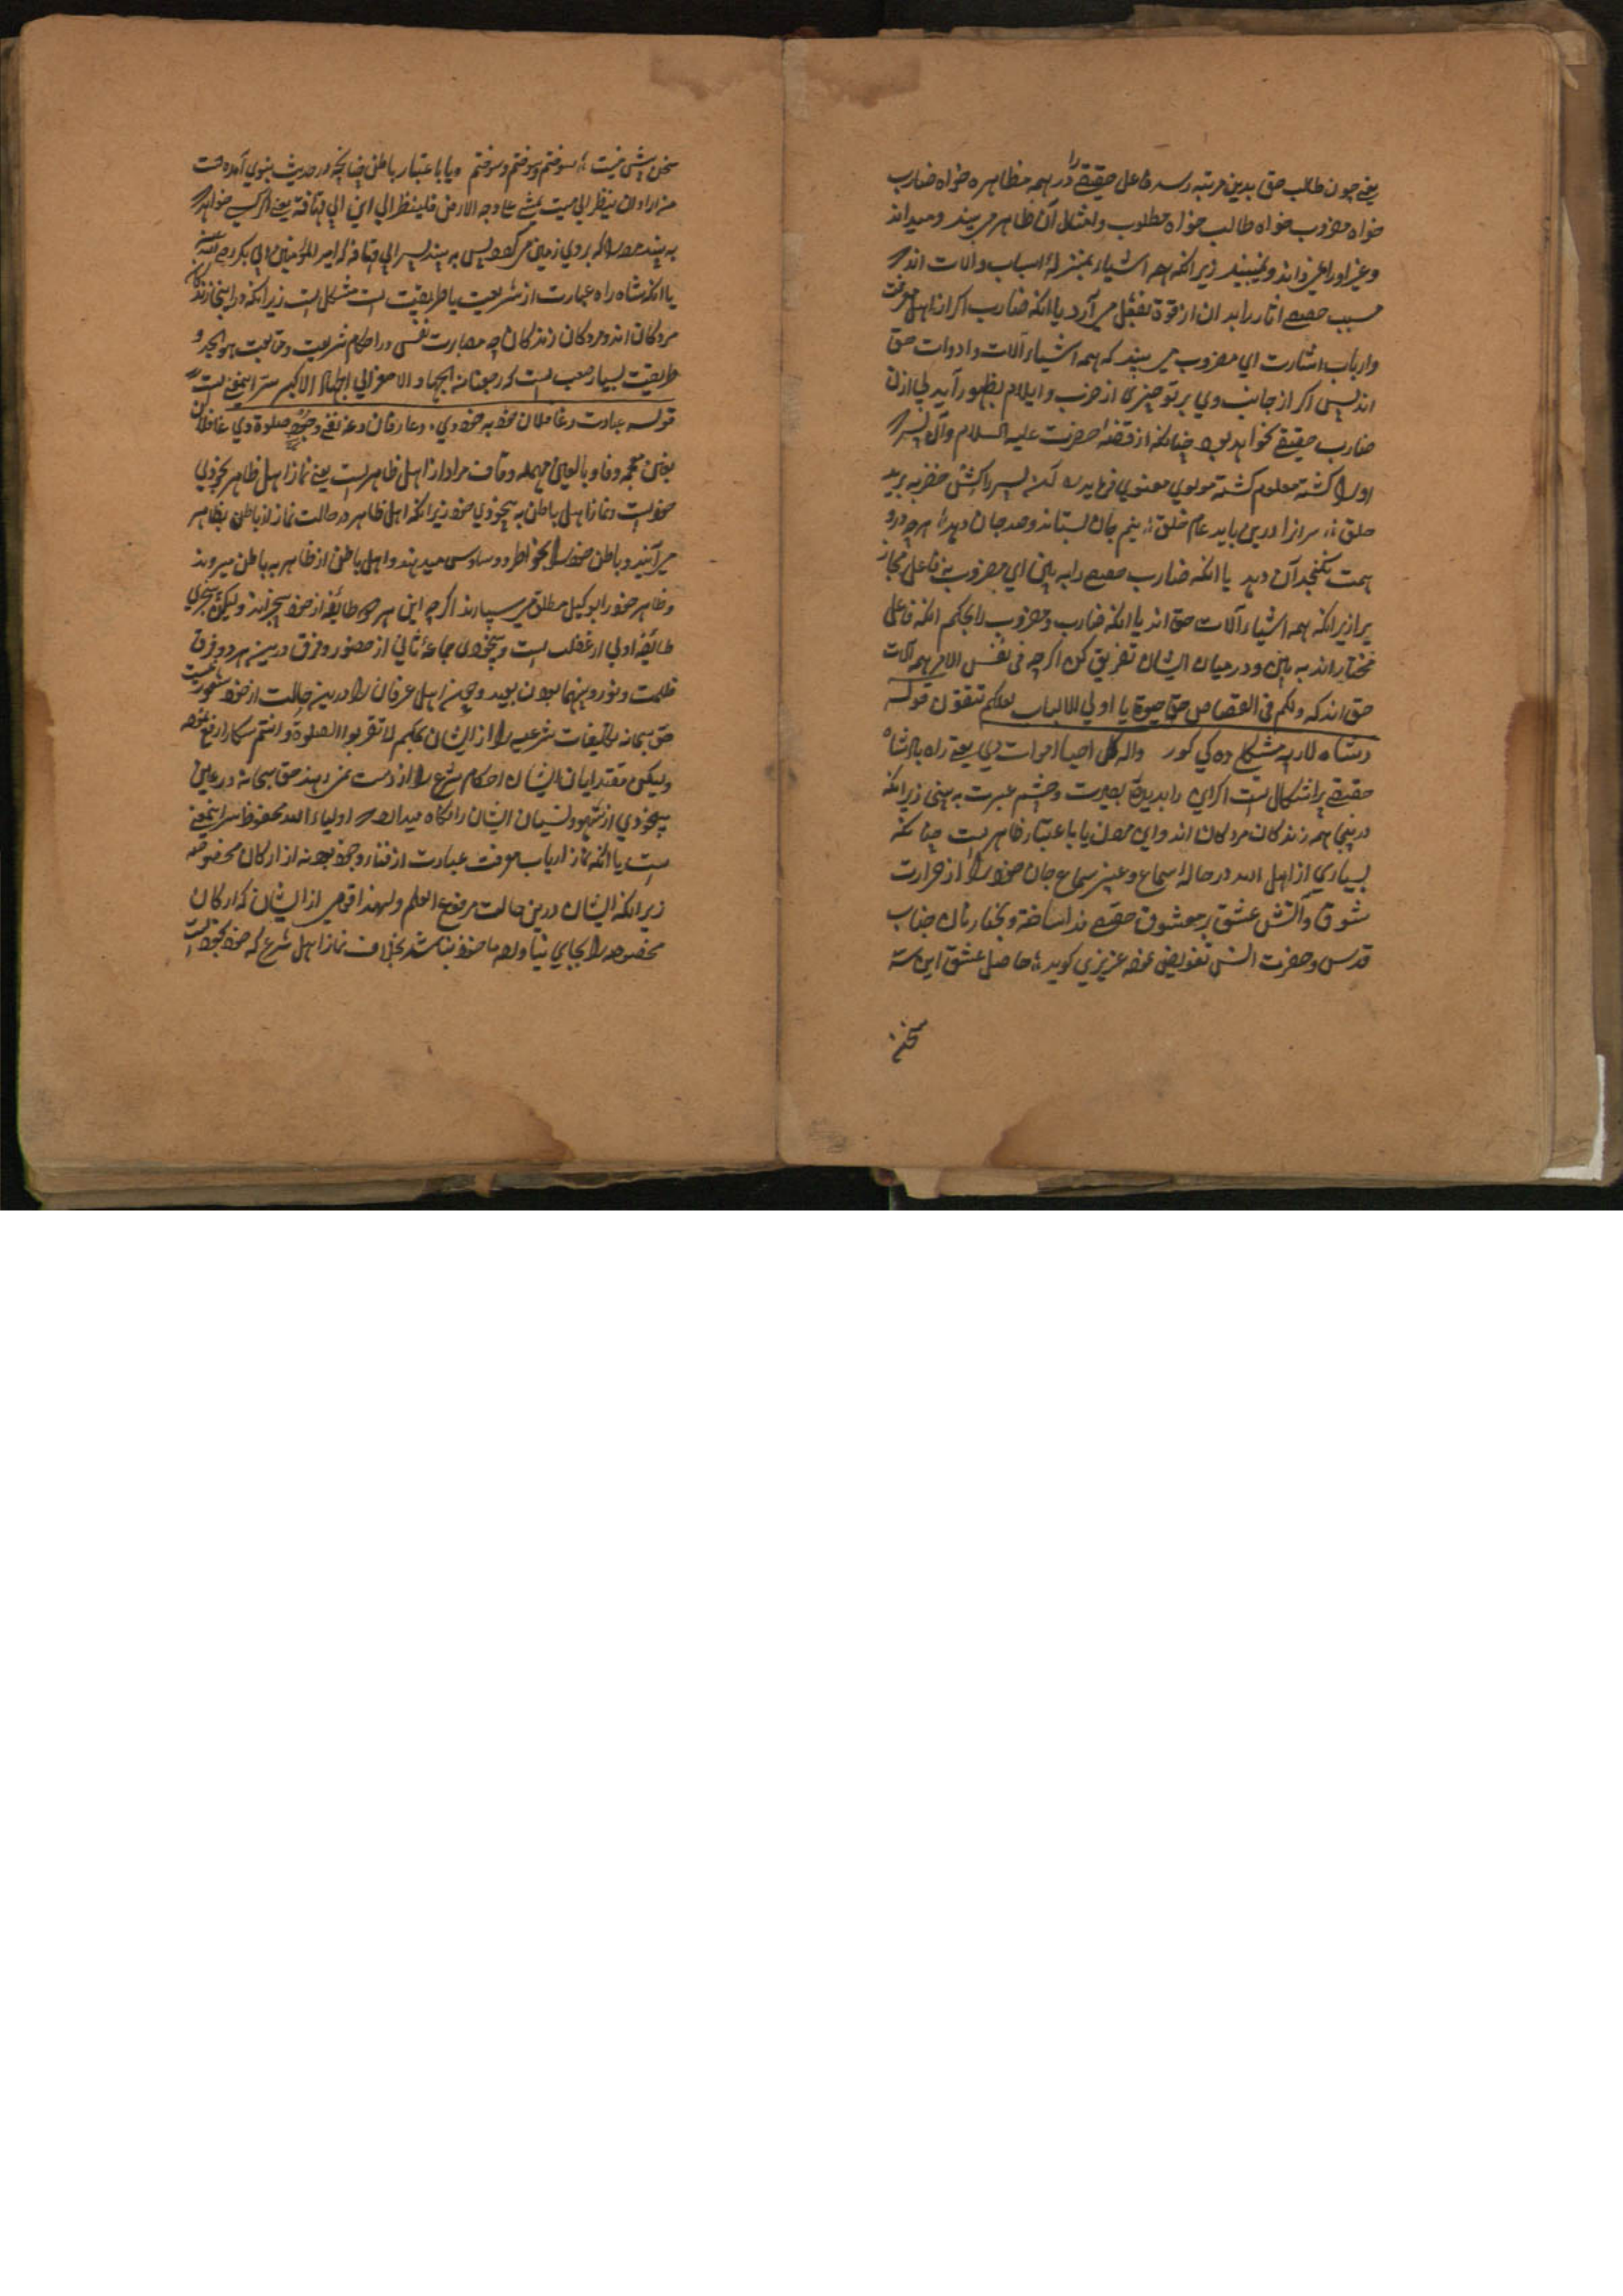 یعنے چون طالب حق بدین مرتبه رسد فاعل حقیقے را در همه مظاهره خواه ضارب
خواه مضروب خواه طالب خواه مطلوب و امثال آن ظاهر می بیند و میداند
و غیر اورا غیر نداند و نمیبیند زیرانکه همه اشیاء بمنزلۀ اسباب والات اند
مسبب حقیقے اثار را بدان از قوة بفعل می آرد یا انکه ضارب اگر از اهل معرفت
وارباب اشارت ای مضروب می بیند که همه اشیاء آلات وادوات حق
اند پس اگر از جانب وی بر تو چیزی از ضرب و ایلام بظهور آید از ان
ضارب حقیقے خواهد بود چنانکه از قصۀ حضرت علیه السلام وآن پسر
اورا کشته معلوم کشته مولوی معنوی فرماید آن پسر را کش خضر ببرید
حلق سر آنرا در نیابد عام خلق نیم جان بستاند وصد جان دهد هرچه در و
همت نگنجد آن دهد یا انکه ضارب حقیقے را به بین ای مضروب نه فاعل مجاز
یرا زیرانکه همه اشیاء آلات حق اند یا انکه ضارب ومضروب را بحکم انکه فاعل
مختار اند به بین و در میان ایشان تفریق کن اگرچه فی نفس الامر همه آلات
حق اند که ولکم فی القصاص حیوة یا اولی الالباب لعلکم تتقون قوله
دشاه لار به مشکل ده کی کور واله کل احیا اموات دی یعنے راه بادشاه
حقیقے پر اشکال است اگر این را بدیدۀ بصیرت وچشم عبرت به بینی زیرانکه
درینجا همه زندکان مردکان اند واین مضمون یا باعتبار ظاهر است چنانکه
بسیاری از اهل الله در حالۀ سماع وغیر سماع جان خود را از حرارت
شوق وآتش عشق بر معشوق حقیقے فدا ساخته و بجناب
قدس وحضرت انس تفویض نموده عزیزی کوید حاصل عشق این سه
سخن
سخن بیش نیست سوختم وسوختم وسوختم ویا باعتبار باطن چنانچه در حدیث نبوی آمده است
من اراد ان ینظر الی میت یمشے علے وجه الارض فلینظر الی ابن ابی قحافه یعنے هرکسے خواهد
به بیند مرده را که بروی زمین می کردد پس به بیند پسر ابی قحافه که امیر المؤمنین ابی بکر رضے
یا انکه شاه راه عبارت از شریعت یا طریقت است مشکل است زیرانکه در اینجا زندکان
مردکان اند ومردکان زندکان چه مصابرت نفس در احکام شریعت و
طریقت بسیار صعب است که رجعنا من الجهاد الاصغر الی الجهاد الاکبر سر اینمعنے است
قوله عبادت د غافلان خود به خودی د عارفان د عه نفے وجود صلوة دی غافلان
بغین معجمه وفا و بالعین مهمله وقاف مراد از اهل ظاهر است یعنے نماز اهل ظاهر بخودی
خود است ونماز اهل باطن به بیخودی خود زیرانکه اهل ظاهر در حالت نماز از باطن بظاهر
می آیند و باطن خود را بخواطر و وساوس میدهند واهل باطن از ظاهر به باطن میروند
وظاهر خود را بوکیل مطلق می سپارند اگرچه این هر دو طائفه از خود بیخبرند ولیکن بیخبری
طائفۀ اولی از غفلت است وبیخودی جماعۀ ثانی از حضور وفرق درمیان هر دو فرق
ظلمت ونور وبینهما بون بعید وچون اهل عرفان را درین حالت از خود شعور نیست
حق سبحانه تکلیفات شرعیه را از ایشان بحکم لا تقربوا الصلوة وانتم سکارا رفع نموده
ولیکن مقتدایان ایشان احکام شرع را از دست نمی دهند حق سبحانه در عین
بیخودی از سهو ونسیان ایشان را نکاه میدارد اولیاء الله محفوظ سر اینمعنے
است یا انکه نماز ارباب معرفت عبارت از فناء وجود بود نه از ارکان مخصوصه
زیرانکه ایشان درین حالت مرفوع القلم ولهذا قومی از ایشان که ارکان
مخصوصه را بجای نیاورد ماخوذ نباشد بخلاف نماز اهل شرع که خود بخود است